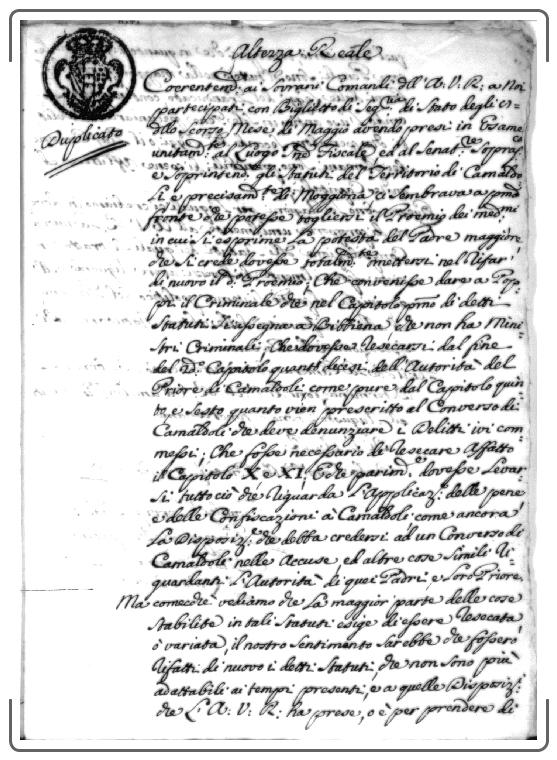 Altezza Reale
Duplicato
Coerentem.te ai Sovrani Comandi dell'A: V: R: a Noi
partecipati con Biglietto di Seg.ria di Stato degli
dello scorso Mese di Maggio avendo presi in Esame
unitam.te al Luogo Ten.te Fiscale, ed al Senat.re
e Soprintend. gli Statuti del Territorio di Camaldo
li e precisam.te di Moggiona, ci sembrava a prima
fronte che potesse togliersi il Proemio dei med.mi
in cui si esprime la potestà del Padre maggiore
che si crede dovesse totalm.te omettersi nel rifar
di nuovo il d.o Proemio; Che convenisse dare a Pop
pi il Criminale che nel Capitolo primo di detti
Statuti si assegna a Bibbiena che non ha Mini
stri Criminali; Che dovesse resecarsi dal fine
del 2.do Capitolo quanto dicesi dell'Autorità del
Priore di Camaldoli, come pure dal Capitolo quin
to, e sesto quanto vien prescritto al Converso di
Camaldoli che deve denunziare i Delitti ivi com
messi; Che fosse necessario di resecare affatto
il Capitolo X e XI; E che parim.te dovesse levar
si tutto ciò che riguarda l'Applicaz.e delle pene
e delle Confiscazioni a Camaldoli come ancora
la Disposiz.e che debba credersi ad un Converso di
Camaldoli nelle Accuse ed altre cose simili ri
guardanti l'Autorità di quei Padri, e loro Priore,
Ma comecchè vediamo che la maggior parte delle cose
stabilite in tali Statuti esige di essere resecata
ò variata, il nostro sentimento sarebbe che fossero
rifatti di nuovo i detti Statuti, che non sono più
adattabili ai tempi presenti, e a quelle Disposiz.i
che L'A: V: R: ha prese, o è per prendere di